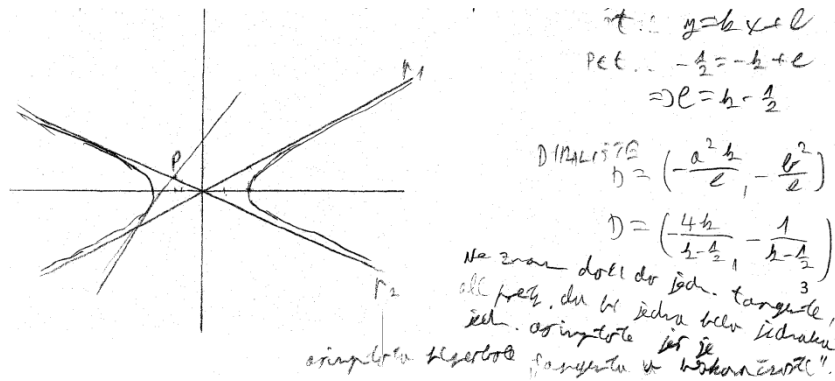 t... y=kx+l
P∈t... -1/2=-k+l
=> l=k-1/2
DIRALIŠTE
D=(-a²k/l, -b²/l)
D=(-4k/(k-1/2), -1/(k-1/2))
Ne znam doći do jedn. tangente,
da bi jedna bila jednaka
jedn. asimptote jer je
asimptota hiperbole "tangenta u beskonačnosti".
P
r1
r2